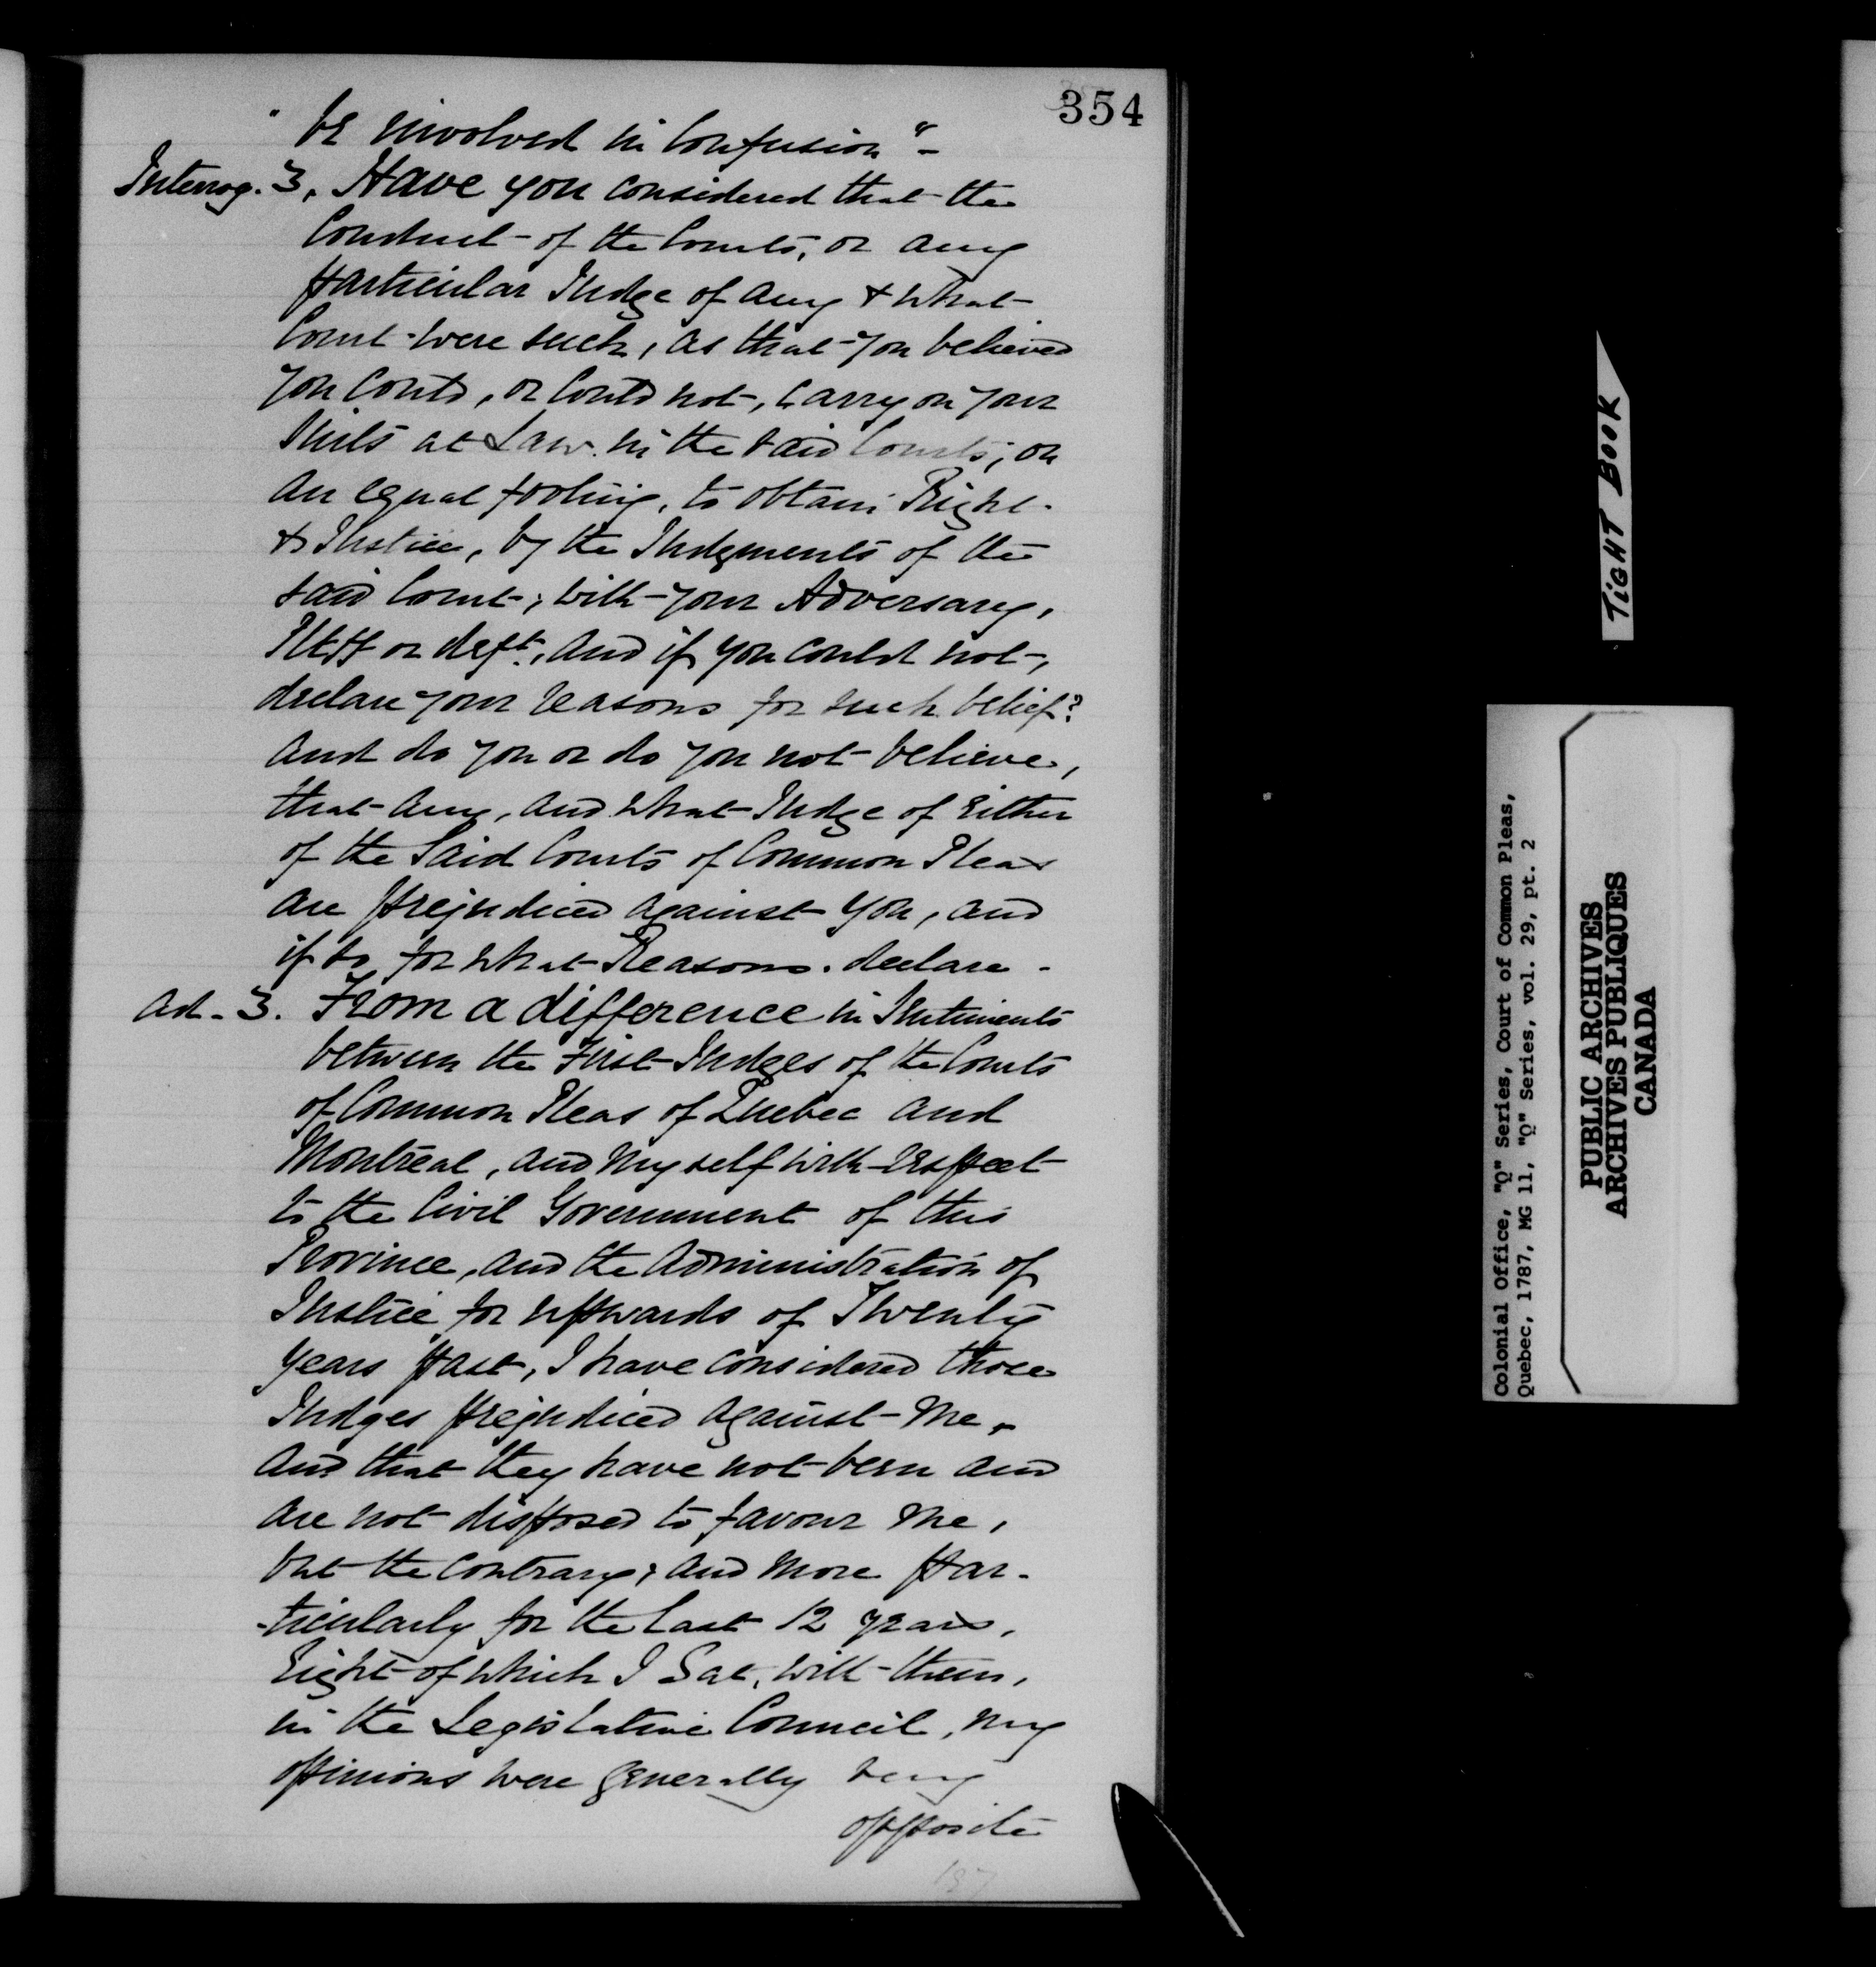 354
" be involved in Confusion "-
Interrog. 3. Have you considered that the
Conduct of the Courts, or any
particular Judge of any & what
Court were such, as that you believed
you could, or could not, carry on your
Suits at Law in the said Courts, on
an equal footing, to obtain Right
& Justice, by the Judgments of the
said Court, with your Adversary,
Pltff or deft., and if you could not,
declare your reasons for such belief?
and do you or do you not believe,
that any, and what Judge of Either
of the Said Courts of Common Pleas
are prejudiced against you, and
if so for what Reasons. declare -
Ad. 3. From a difference in Sentiments
between the First Judges of the Courts
of Common Pleas of Quebec and
Montreal, and myself with respect
to the Civil Government of this
Province, and the Administration of
Justice for upwards of Twenty
years past, I have considered those
Judges prejudiced against me,
and that they have not been and
are not disposed to favour me,
but the contrary; and more par-
-ticularly for the last 12 years,
Eight of which I Sat, with them,
in the Legislative Council, my
opinions were generally being
opposite
187
TIGHT BOOK
Colonial Office, "Q" Series, Court of Common Pleas,
Quebec, 1787, MG 11, "Q" Series, vol. 29, pt. 2
PUBLIC ARCHIVES
ARCHIVES PUBLIQUES
CANADA